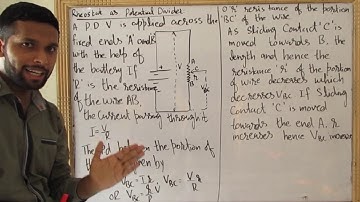 Rheostat as Potential Divider
A P.D V is applied across the
fixed ends 'A' and
with the help of
the battery If
'R' is the resistance
of the wire AB,
the current passing through it
I = V/R
The p.d between the portion of
given by
V_BC = I r V_BC = V r/R
OR V_BC = r/R V
A
C
r
B
V_BC
r resistance of the portion
'BC' of the wire
As Sliding Contact 'C' is
moved towards B, the
length and hence the
resistance 'r' of the portion
of wire decreases which
decreases V_BC If Sliding
Contact 'C' is moved
towards the end A, r
increases hence V_BC increases